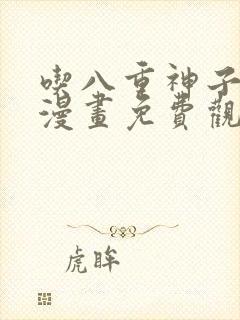 喫八重神子
漫畫免費觀
虎眸